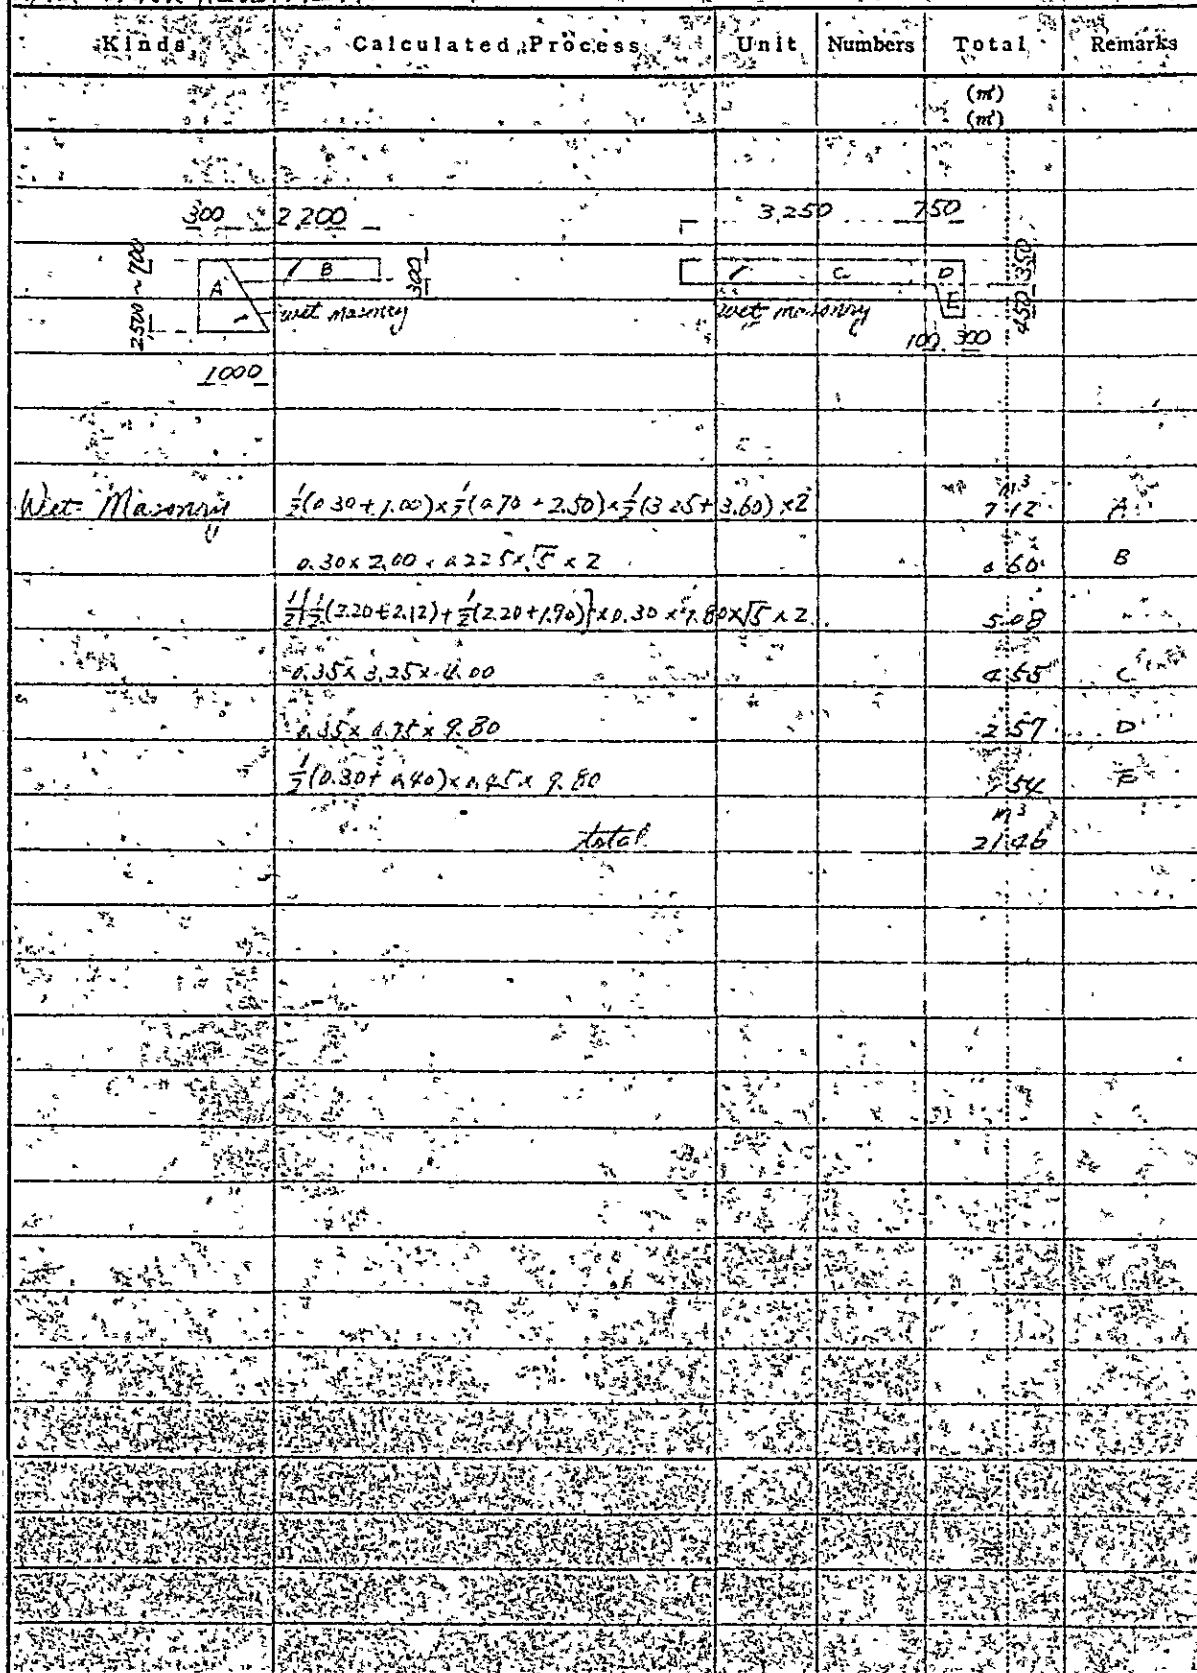 Kinds Calculated Process Unit Numbers Total Remarks
(m³)
(m³)
300 2,200 3,250 750
2500~700 A B 300 C D E 450 350
wet masonry wet masonry
100 300
1000
m³
Wet Masonry ½(0.30+1.00)×½(0.70+2.50)×½(3.25+3.60)×2 7.12 A
0.30×2.00×0.225×√5×2 0.60 B
½{½(2.20+2.12)+½(2.20+1.90)}×0.30×1.80×√5×2 5.08
0.35×3.25×4.00 4.55 C
0.35×0.75×9.80 2.57 D
½(0.30+0.40)×0.45×9.80 1.54 E
m³
total 21.46